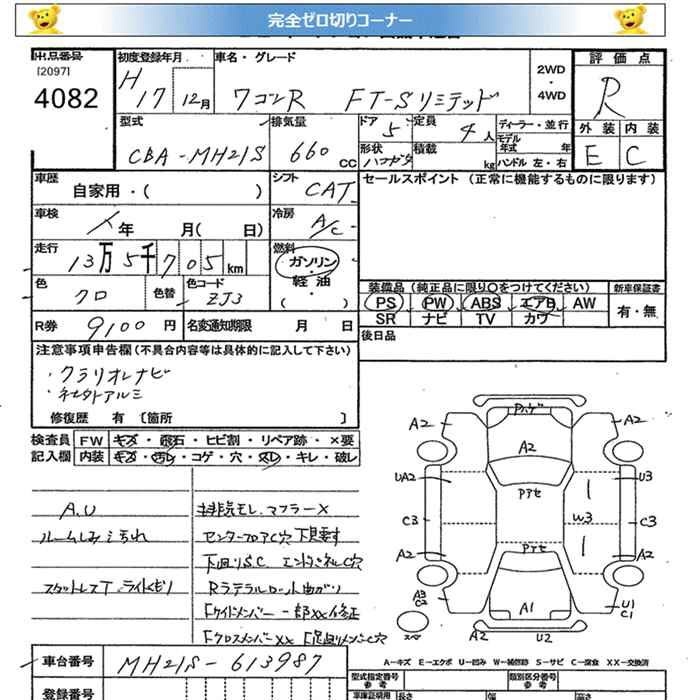 完全ゼロ切りコーナー
出品番号
[2097]
4082
初度登録年月
H 17 12月
車名・グレード
ワゴンR FT-Sリミテッド
2WD
・
4WD
評価点
R
外装 内装
E C
型式
CBA-MH21S
排気量
660 cc
ドア 5
形状
定員 4人
積載 kg
ディーラー・並行
モデル
年式 年
ハンドル 左・右
車歴
自家用・( )
シフト
CAT
セールスポイント (正常に機能するものに限ります)
車検
年 月( 日)
冷房
A/C
走行
13万5千705km
燃料
ガソリン
・
軽油
・
( )
色
クロ
色替
色コード
ZJ3
装備品 (純正品に限り○をつけてください)
新車保証書
PS PW ABS エアB AW
SR ナビ TV カワ
有・無
R券 9100円
名変通知期限 月 日
後日品
注意事項申告欄(不具合内容等は具体的に記入して下さい)
・クラリオンナビ
・社外アルミ
修復歴 有 〔箇所 〕
検査員
記入欄
FW キズ・飛石・ヒビ割・リペア跡・×要
内装 キズ・汚レ・コゲ・穴・スレ・キレ・破レ
A.U
ルームしみ汚れ
スタットレスT.ライトくもり
排気モレ.マフラーX
センターフロアC穴 下見要す
下回りS.C
Rラテラルロット曲がり
Fサイドメンバー一部XX修正
FクロスメンバーXX
A2
バンパ
A2
A2
UA2
U3
アセ
C3
W3
C3
A2
アセ
A2
A3
C2
A1
U1
C1
スペ
A2
U2
車台番号
MH21S-613987
A―キズ E―エクボ U―凹み W―補修跡 S―サビ C―腐食 XX―交換済
登録番号
型式指定番号
参考
類別区分番号
参考
車庫証明用
長さ
幅
高さ